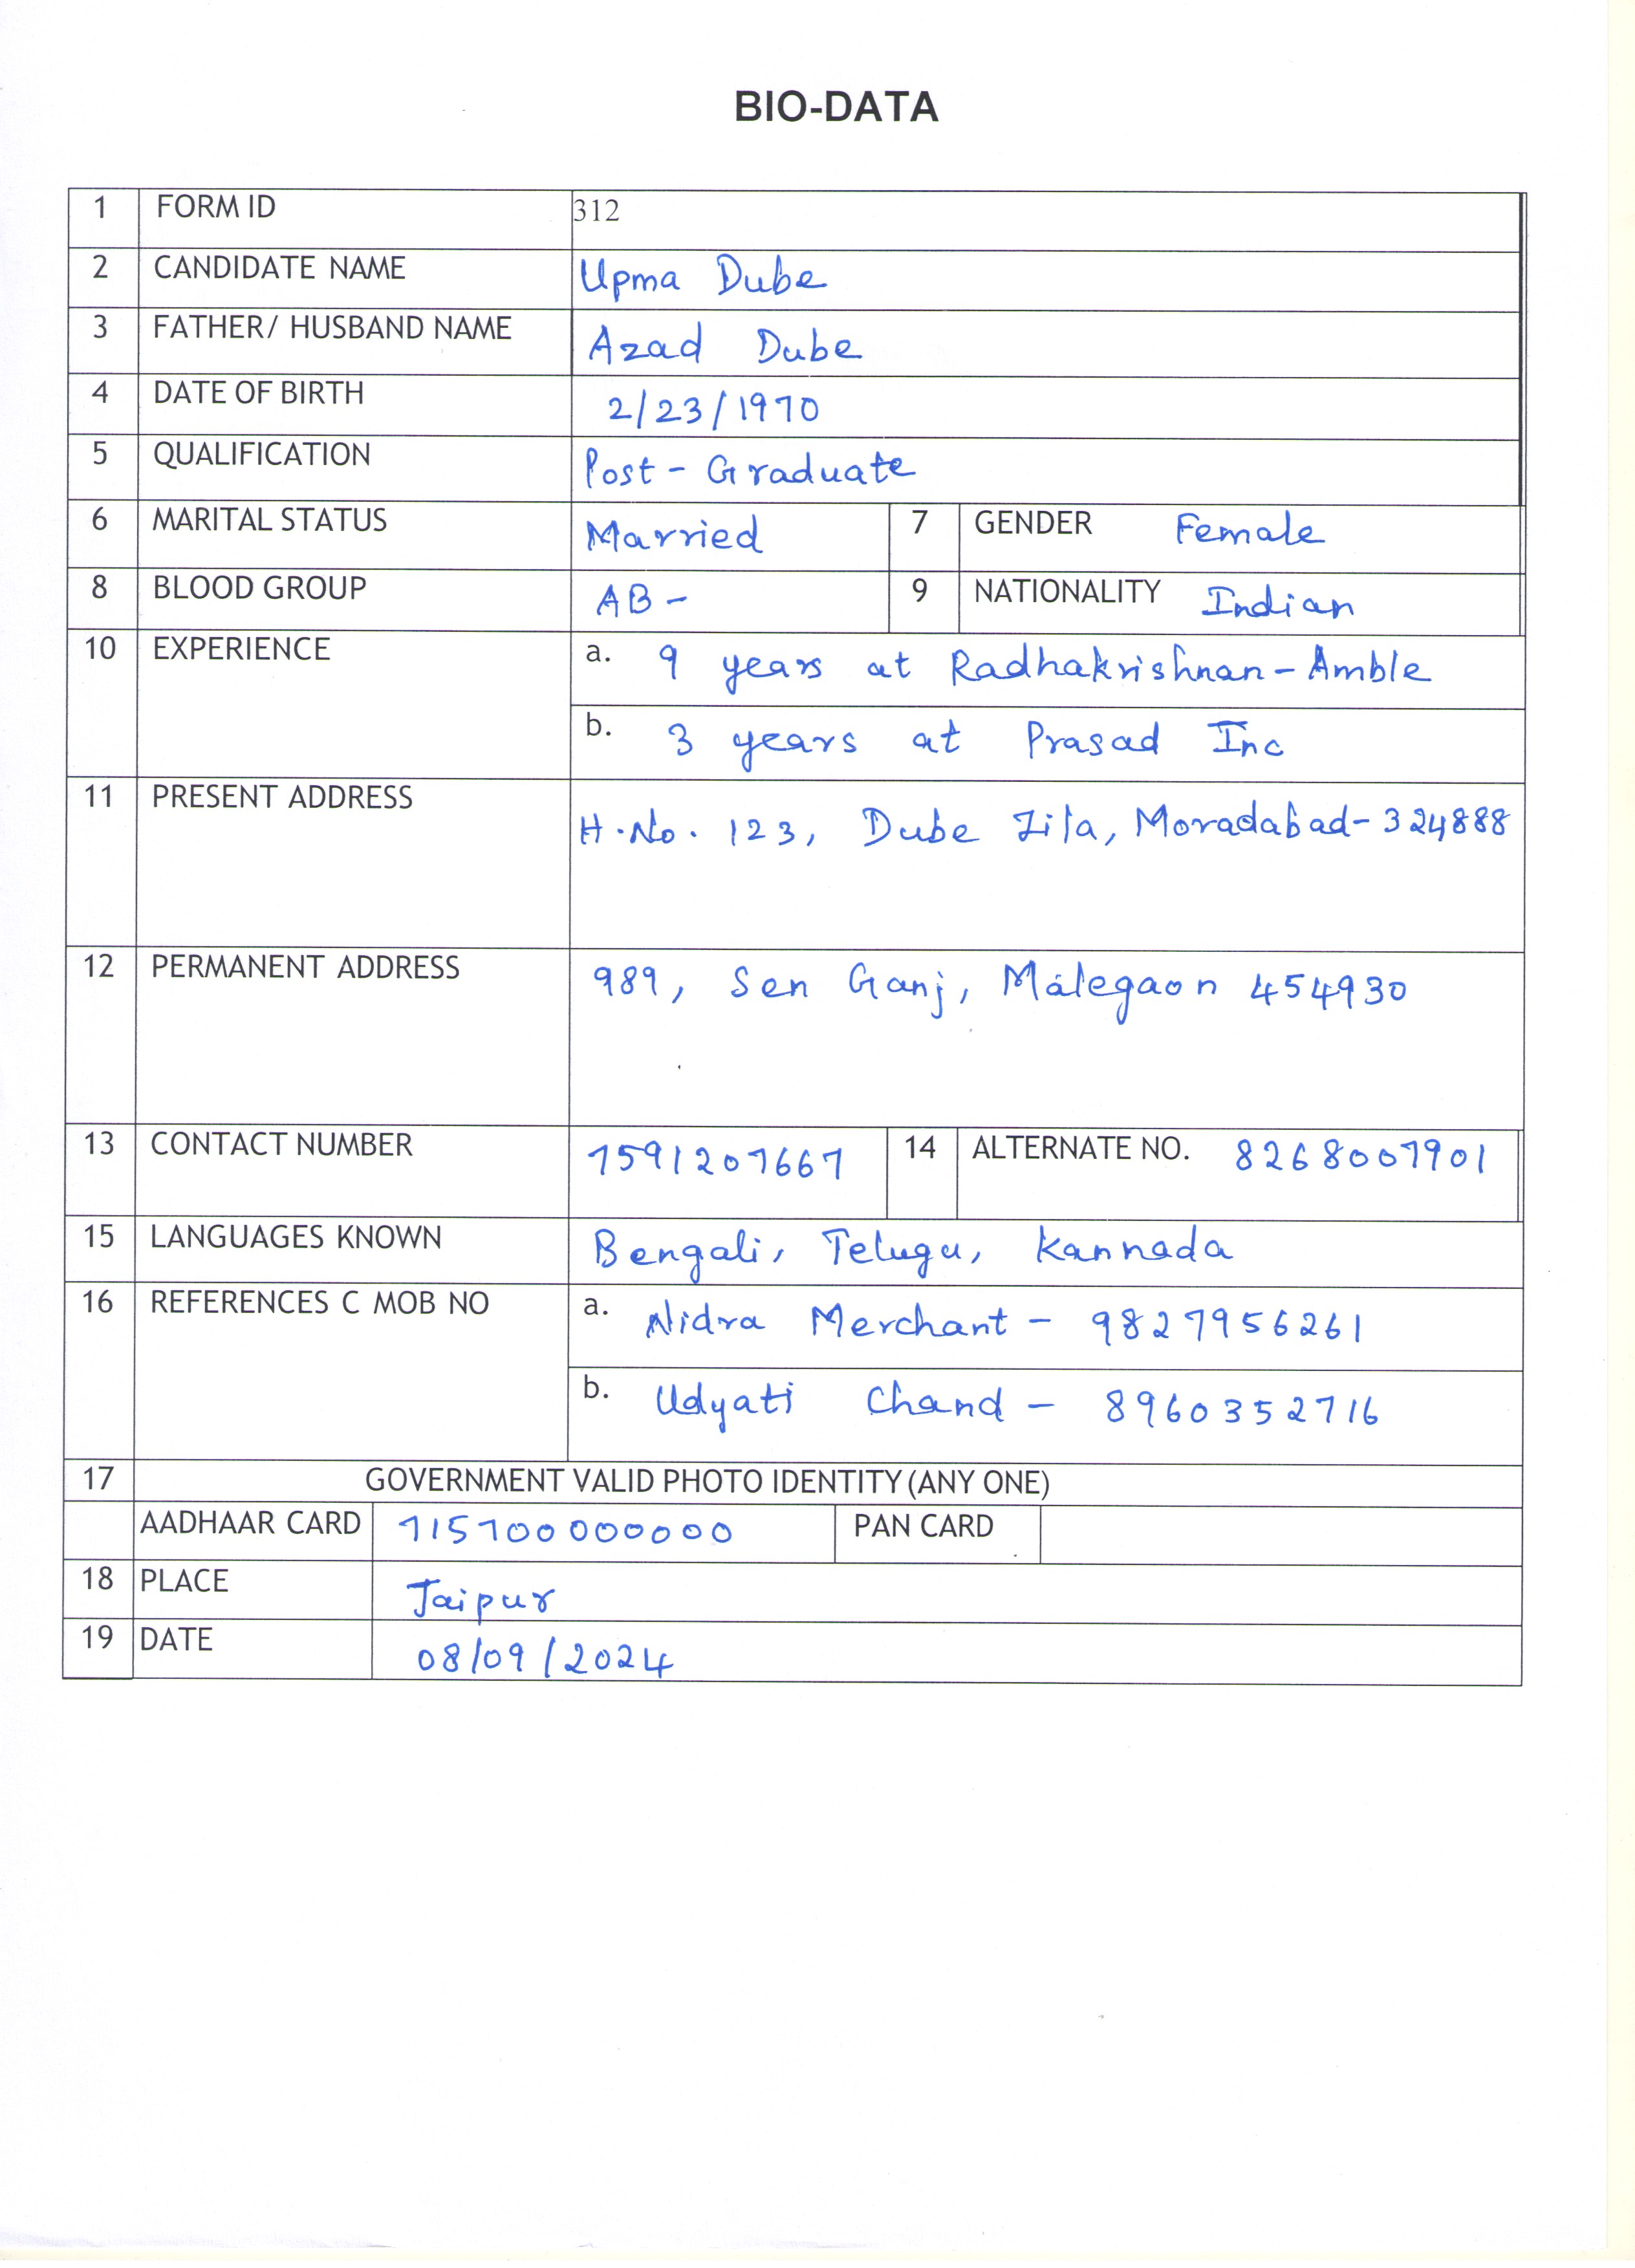 BIO-DATA
1 FORM ID 312
2 CANDIDATE NAME Upma Dube
3 FATHER/ HUSBAND NAME Azad Dube
4 DATE OF BIRTH 2/23/1970
5 QUALIFICATION Post-Graduate
6 MARITAL STATUS Married 7 GENDER Female
8 BLOOD GROUP AB- 9 NATIONALITY Indian
10 EXPERIENCE a. 9 years at Radhakrishnan-Amble
b. 3 years at Prasad Inc
11 PRESENT ADDRESS H.No. 123, Dube Zila, Moradabad-324888
12 PERMANENT ADDRESS 989, Sen Ganj, Malegaon 454930
13 CONTACT NUMBER 7591207667 14 ALTERNATE NO. 8268007901
15 LANGUAGES KNOWN Bengali, Telugu, Kannada
16 REFERENCES C MOB NO a. Nidra Merchant - 9827956261
b. Udyati Chand - 8960352716
17 GOVERNMENT VALID PHOTO IDENTITY(ANY ONE)
AADHAAR CARD 715700000000 PAN CARD
18 PLACE Jaipur
19 DATE 08/09/2024